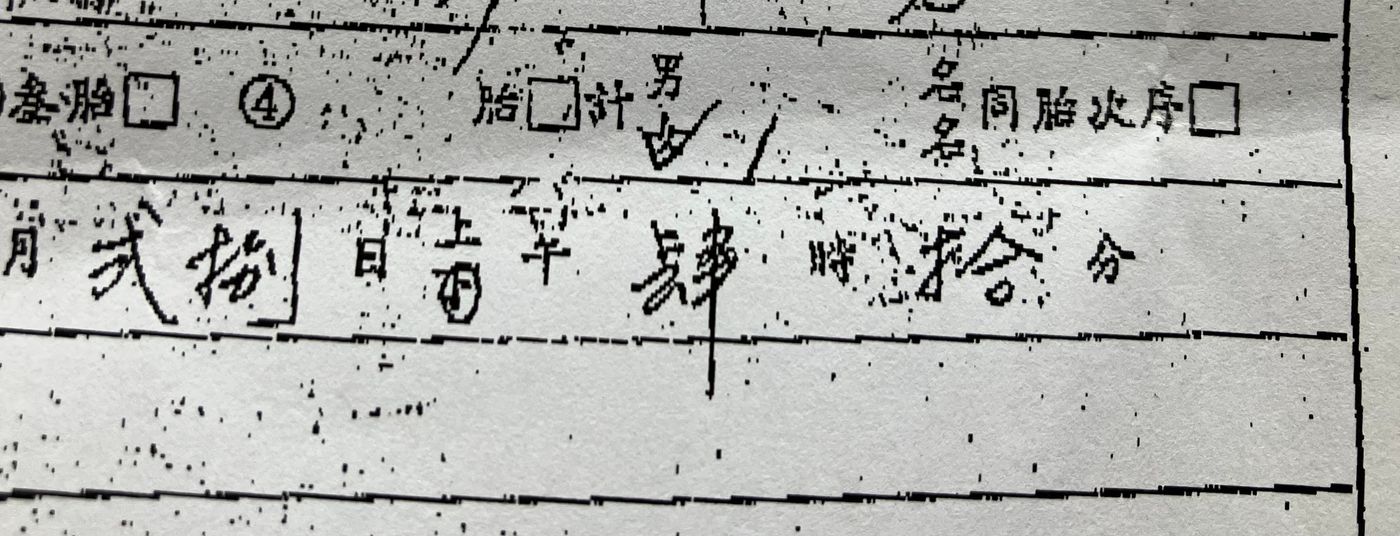 胎□ ④ 胎□計 男 名 同胎次序□
女 名
月 貳拾 日 上 午 肆 時 拾 分
下